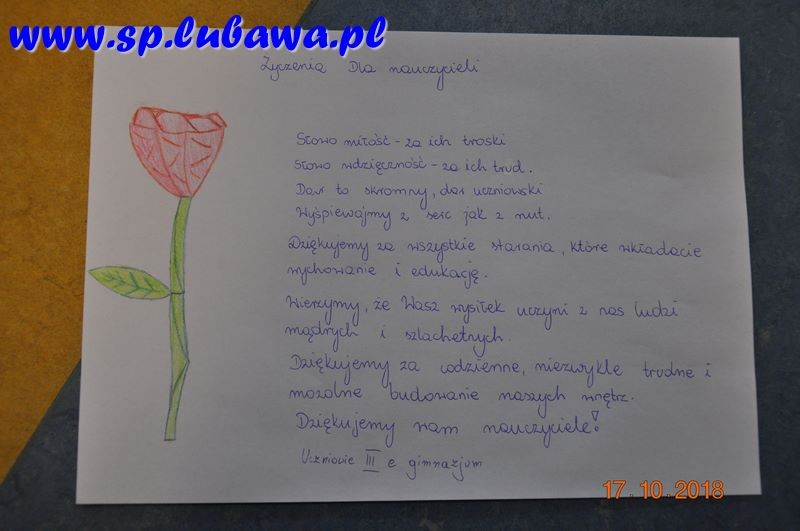 www.sp.lubawa.pl
Życzenia Dla nauczycieli
Słowo miłość - za ich troski
Słowo wdzięczność - za ich trud.
Dar to skromny, dar uczniowski
Wyśpiewajmy z serc jak z nut.
Dziękujemy za wszystkie starania, które wkładacie
wychowanie i edukację.
Wierzymy, że Wasz wysiłek uczyni z nas ludzi
mądrych i szlachetnych.
Dziękujemy za codzienne, niezwykle trudne i
mozolne budowanie naszych wnętrz.
Dziękujemy wam nauczyciele!
Uczniowie III e gimnazjum
17.10.2018